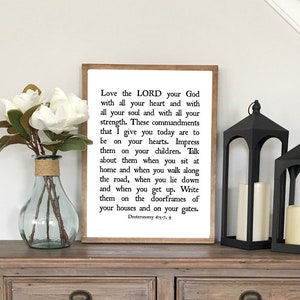 Love the LORD your God
with all your heart and with
all your soul and with all your
strength. These commandments
that I give you today are to
be on your hearts. Impress
them on your children. Talk
about them when you sit at
home and when you walk along
the road, when you lie down
and when you get up. Write
them on the doorframes of
your houses and on your gates.
Deuteronomy 6:5-7, 9